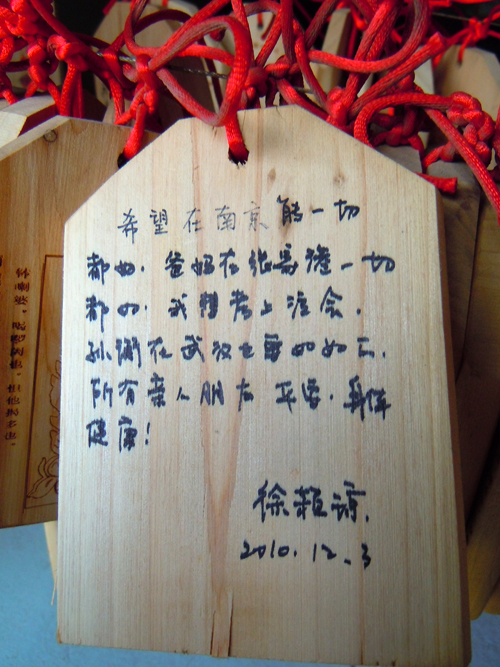 希望在南京能一切
都好.爸妈在张家港一切
都好.我想考上注会.
孙谢在武汉也要好好的.
所有亲人朋友平安.身体
健康!
徐颖谅.
2010.12.3